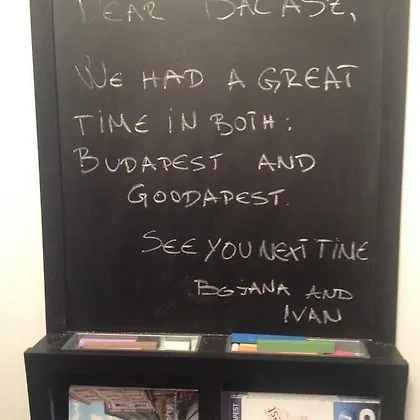 DEAR BALASZ,
WE HAD A GREAT
TIME IN BOTH:
BUDAPEST AND
GOODAPEST.
SEE YOU NEXT TIME
BOJANA AND
IVAN